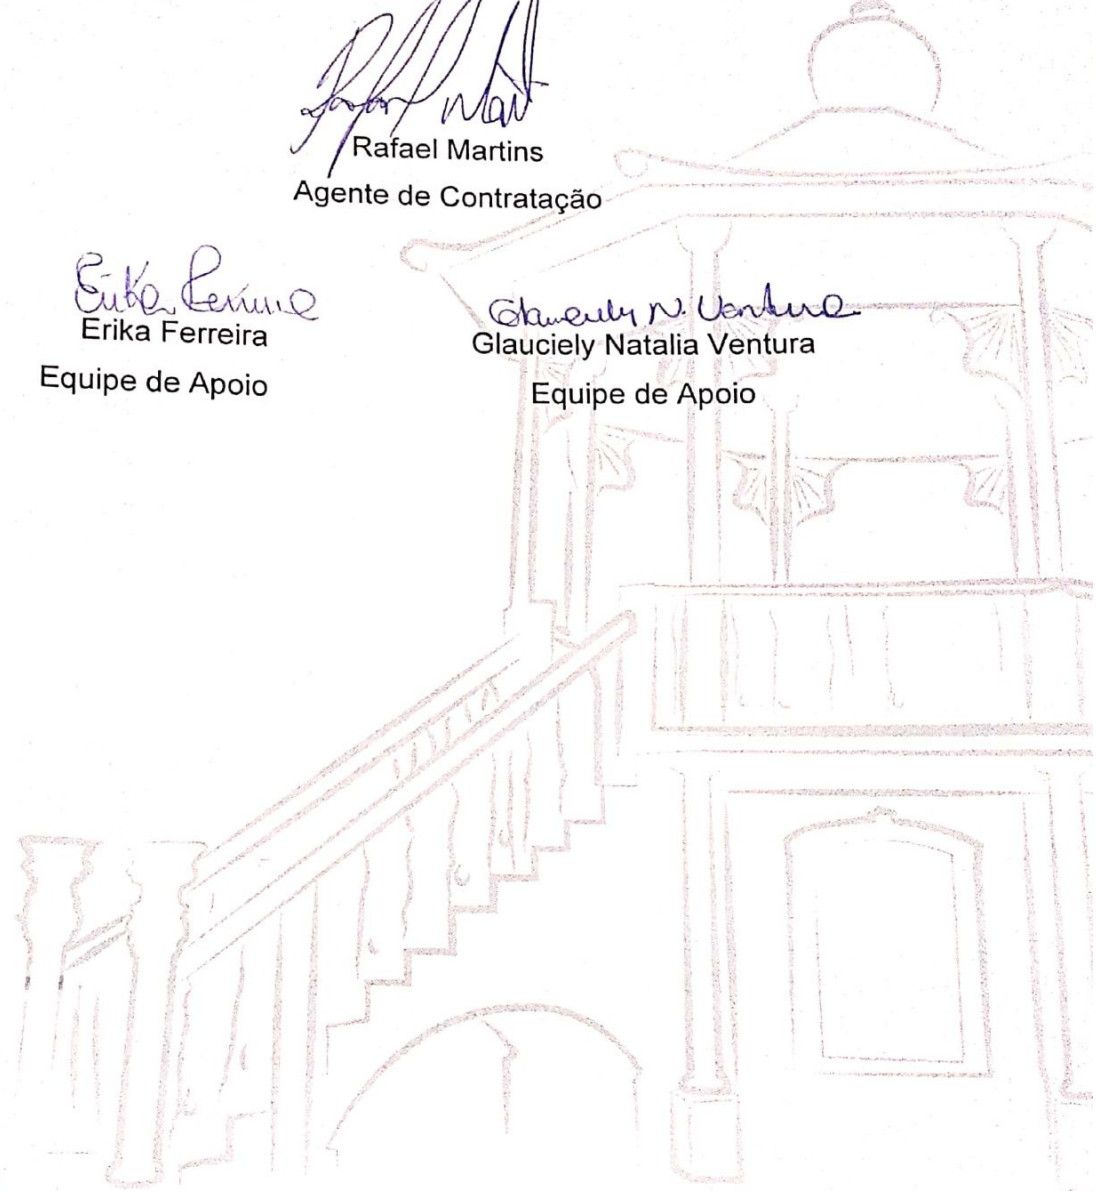 Rafael Martins
Agente de Contratação
Erika Ferreira
Equipe de Apoio
Glauciely N. Ventura
Glauciely Natalia Ventura
Equipe de Apoio